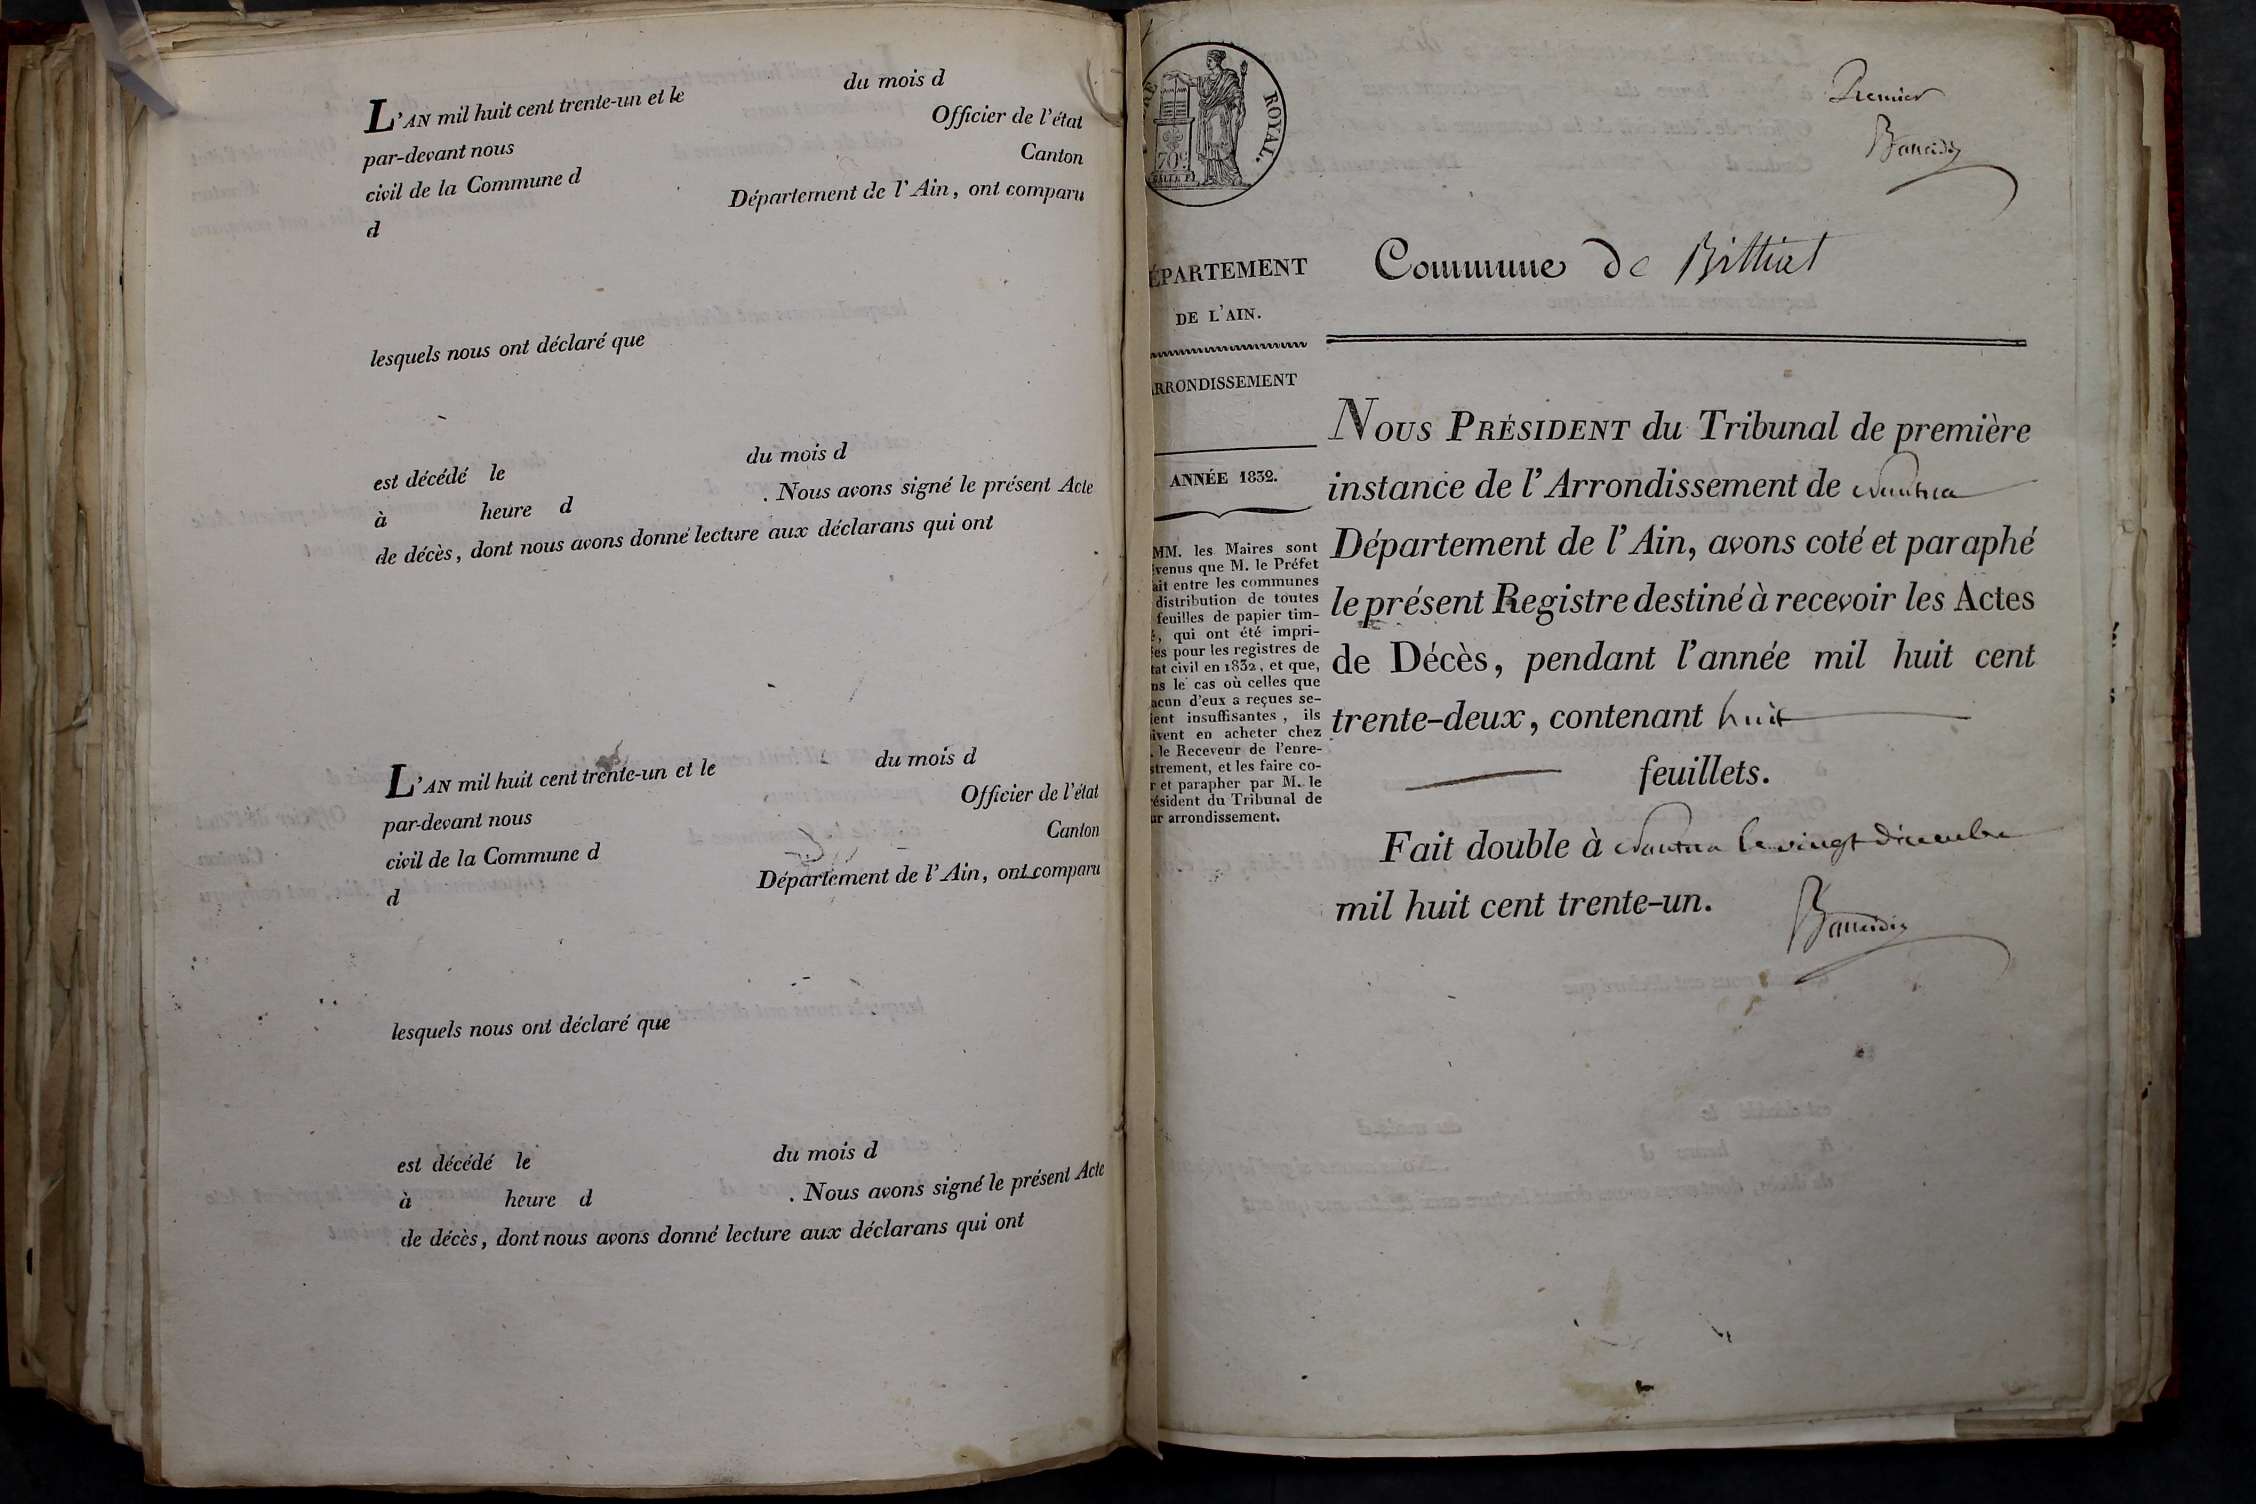 L'AN mil huit cent trente-un et le du mois d
par-devant nous Officier de l'état
civil de la Commune d Canton
d Département de l'Ain, ont comparu
lesquels nous ont déclaré que
est décédé le du mois d
à heure d . Nous avons signé le présent Acte
de décès, dont nous avons donné lecture aux déclarans qui ont
L'AN mil huit cent trente-un et le du mois d
par-devant nous Officier de l'état
civil de la Commune d Canton
d Département de l'Ain, ont comparu
lesquels nous ont déclaré que
est décédé le du mois d
à heure d . Nous avons signé le présent Acte
de décès, dont nous avons donné lecture aux déclarans qui ont
ROYAL.
70c
Premier
ÉPARTEMENT
DE L'AIN.
RRONDISSEMENT
ANNÉE 1832.
MM. les Maires sont
venus que M. le Préfet
ait entre les communes
distribution de toutes
feuilles de papier tim-
é, qui ont été impri-
es pour les registres de
tat civil en 1832, et que,
ns le cas où celles que
acun d'eux a reçues se-
ient insuffisantes, ils
ivent en acheter chez
. le Receveur de l'enre-
strement, et les faire co-
r et parapher par M. le
ésident du Tribunal de
ur arrondissement.
Commune de Billiat
NOUS PRÉSIDENT du Tribunal de première
instance de l'Arrondissement de Nantua
Département de l'Ain, avons coté et paraphé
le présent Registre destiné à recevoir les Actes
de Décès, pendant l'année mil huit cent
trente-deux, contenant huit
feuillets.
Fait double à Nantua le vingt décembre
mil huit cent trente-un.